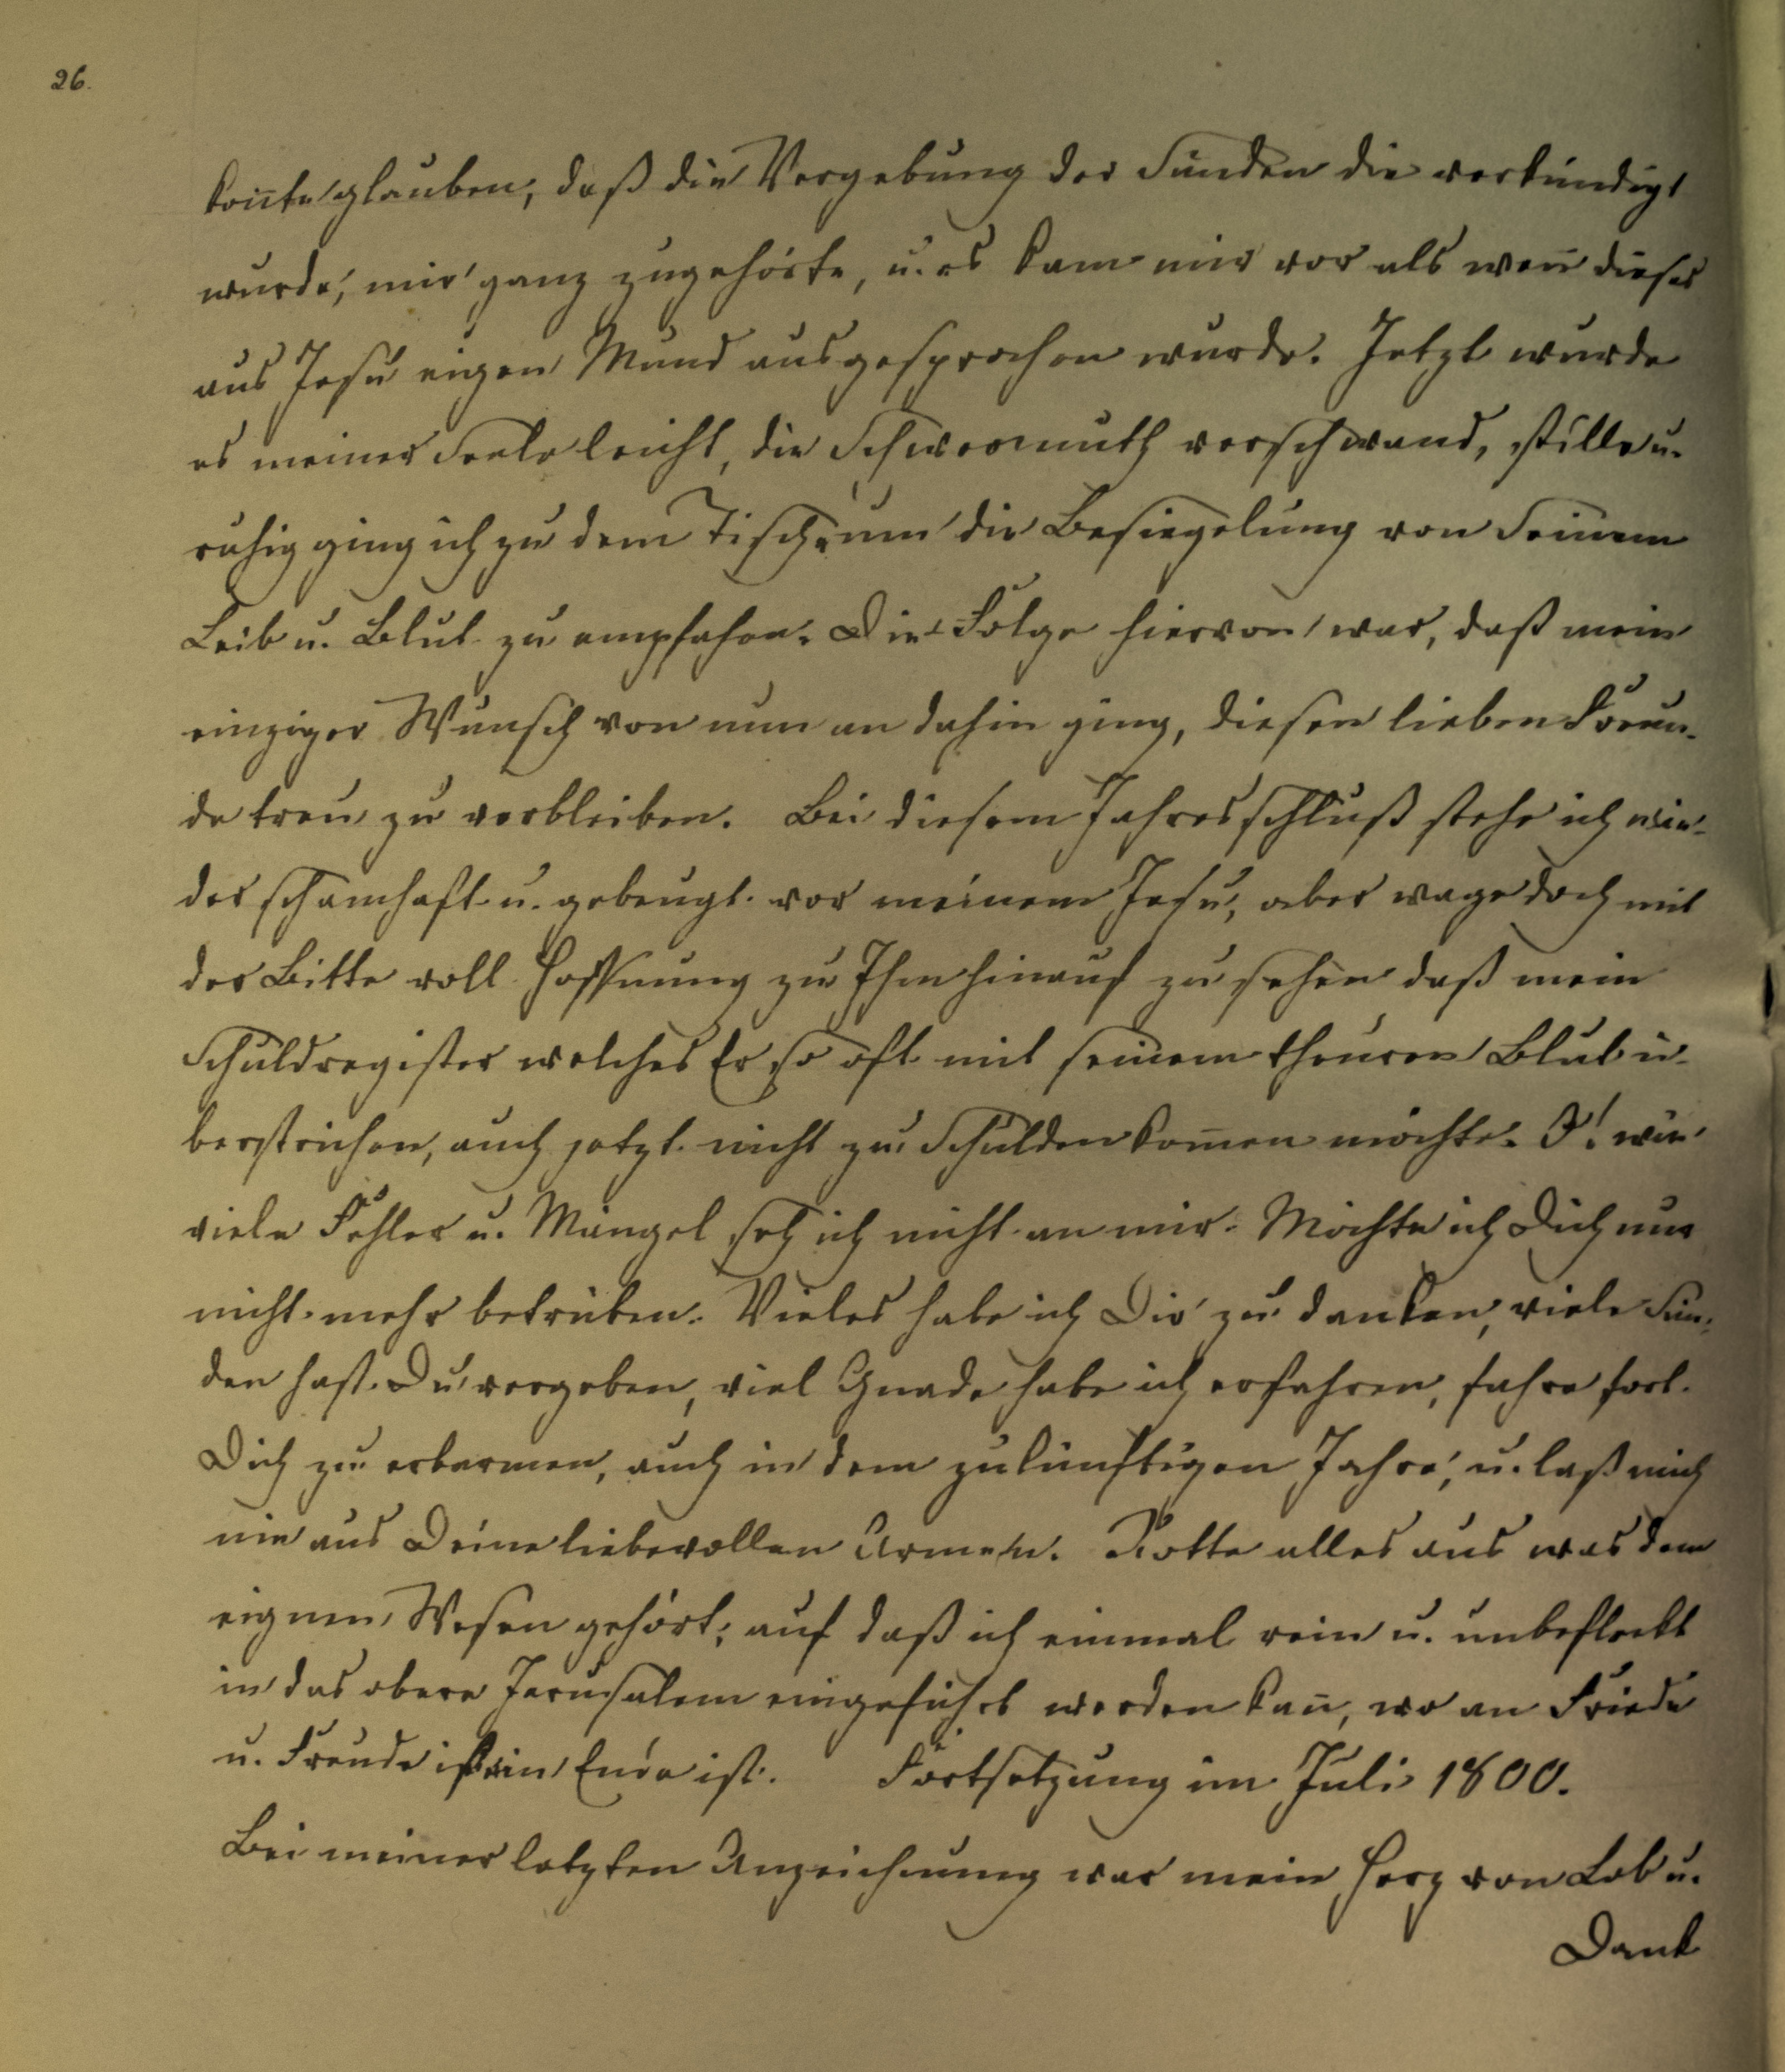 26.
kon̄te glauben, daß die Vergebung der Sünden die verkündigt
wurde, mir ganz zugehörte, u. es kam mir vor als wen̄ dieses
aus Jesu eigen Mund ausgesprochen wurde. Jetzt wurde
es meiner Seele leicht, die Schwermuth verschwand, stille u.
ruhig ging ich zu dem Tisch, um die Besiegelung von Seinem
Leib u. Blut zu empfahen. Die Folge hiervon war, daß mein
einziger Wunsch von nun an dahin ging, diesen lieben Freun-
de treu zu verbleiben. Bei diesem Jahresschluß stehe ich wie-
der schamhaft u. gebeugt vor meinem Jesu, aber wage doch mit
der Bitte voll Hoffnung zu Ihm hinauf zu sehen daß mein
Schuldregister welches Er so oft mit seinem theuren Blut ü-
berstrichen, auch jetzt nicht zu Schulden kom̄en möchte. O! wie
viele Fehler u. Mängel seh ich nicht an mir. Möchte ich Dich nur
nicht mehr betrüben. Vieles habe ich Dir zu danken, viele Sün-
den hast Du vergeben, viel Gnade habe ich erfahren, fahre fort
Dich zu erbarmen, auch in dem zukünftigen Jahre, u. laß mich
nie aus Deine liebevollen Armen. Rotte alles aus was dem
eignen Wesen gehört, auf daß ich einmal rein u. unbefleckt
in das obere Jerusalem eingeführt werden kan̄, wo an Friede
u. Freude kein Ende ist. Fortsetzung im Juli 1800.
Bei meiner letzten Anzeichnung war mein Herz von Lob u.
Dank